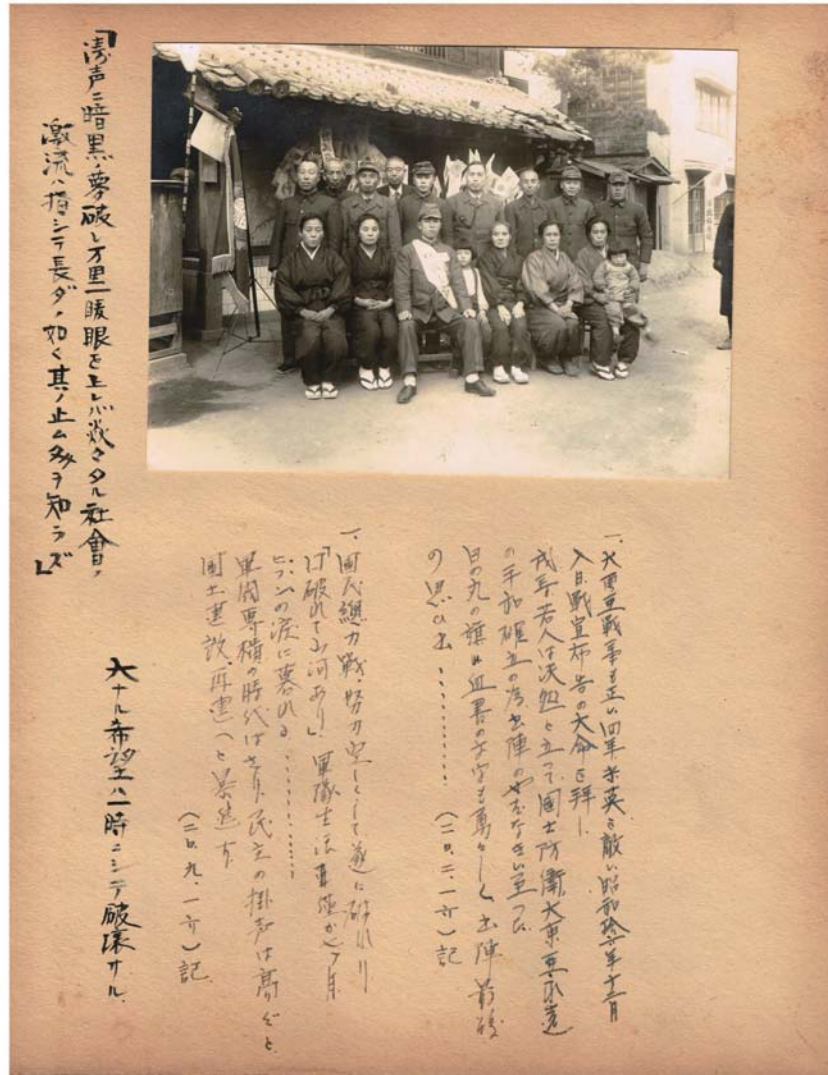 一、大東亜戦争も正に四年米英を敵に昭和拾六年十二月
八日戦宣布告の大命を拝し
我等若人は決然と立って国土防衛大東亜永遠
の平和確立の為出陣のやむなきに至つた
日の丸の旗に血書の文字も勇々しく出陣最後
の思ひ出 ‥‥‥‥‥
(二〇、二、一六)記
一、国民總力戦、努力空しくして遂に破れり
「国破れて山河あり」 軍隊生活
の涙に暮れる ‥‥‥‥
軍国専横の時代はさり、民主の掛声は高
国土建設、再建へと暴進す
(二〇、九、一六)記
大ナル希望ハ一時ニシテ破壊サル
「濤声ニ暗黒ノ夢破レ万里一 眼を上レバ タル社會ノ
激流ハ指シテ長ダノ如く其ノ止ム ヲ知ラズ」